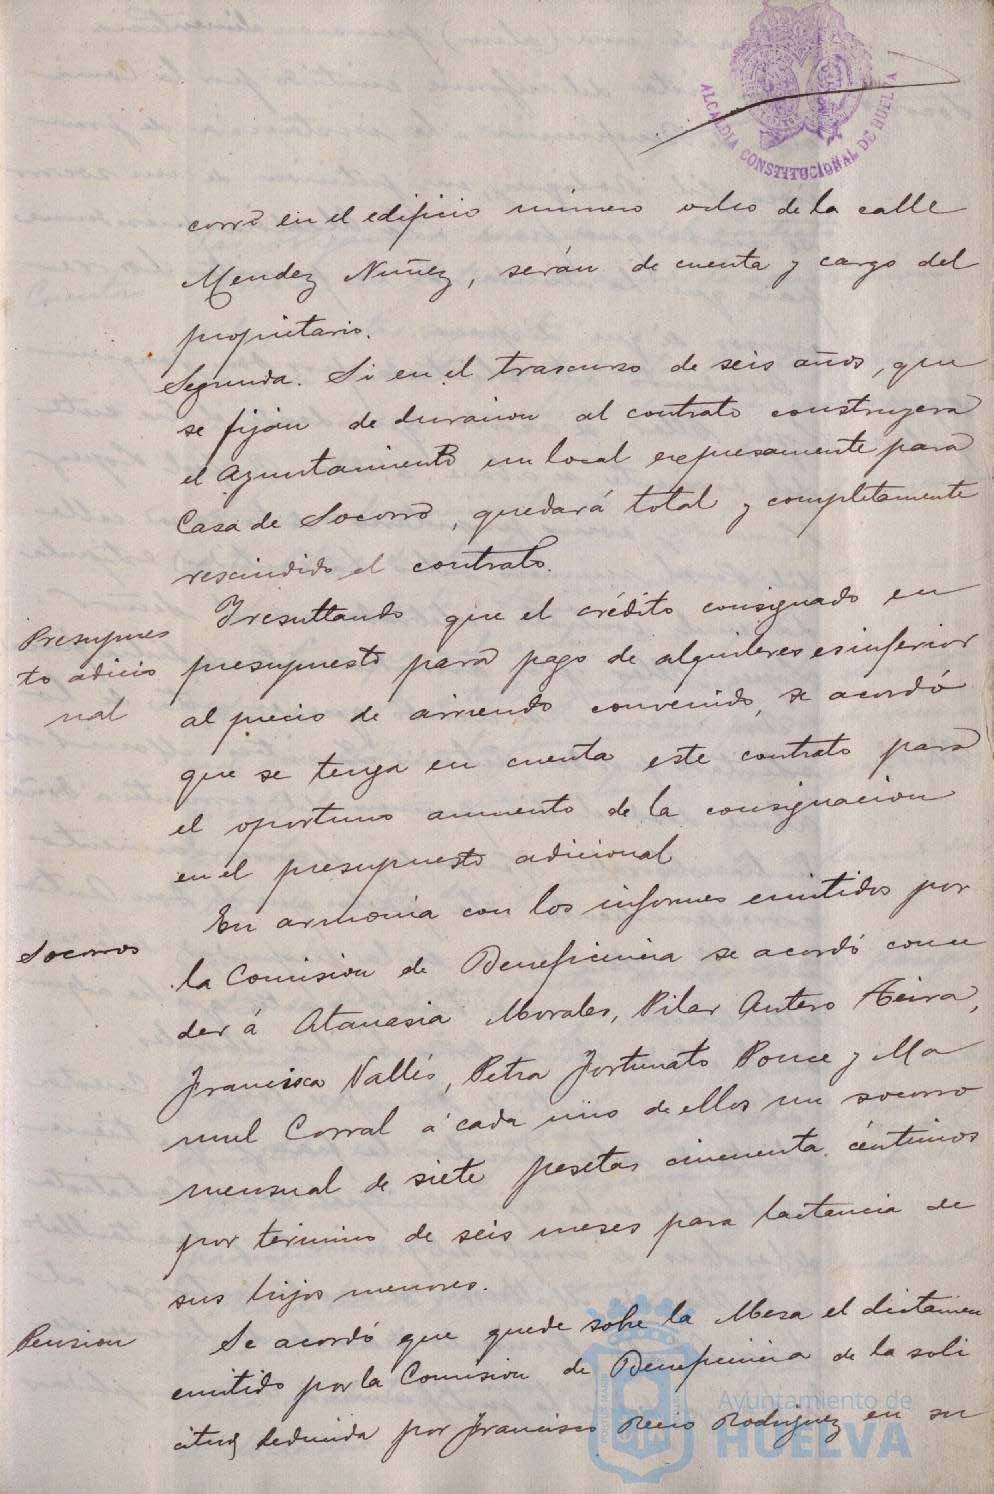 ALCALDIA CONSTITUCIONAL DE HUELVA
corro en el edificio número ocho de la calle
Mendez Nuñez, serán de cuenta y cargo del
propietario.
Segunda. Si en el trascurso de seis años, que
se fijan de duracion al contrato construyera
el Ayuntamiento un local expresamente para
Casa de Socorro, quedará total y completamente
rescindido el contrato.
Presupues
to adicio
nal
Y resultando que el crédito consignado en
presupuesto para pago de alquileres es inferior
al precio de arriendo convenido, se acordó
que se tenga en cuenta este contrato para
el oportuno aumento de la consignacion
en el presupuesto adicional
Socorros
En armonia con los informes emitidos por
la Comision de Beneficencia se acordó conce
der á Atanasia Morales, Pilar Antero Feira,
Francisca Vallés, Petra Fortunato Ponce y Ma
nuel Corral á cada uno de ellos un socorro
mensual de siete pesetas cincuenta céntimos
por termino de seis meses para lactancia de
sus hijos menores.
Pension
Se acordó que quede sobre la Mesa el dictamen
emitido por la Comision de Beneficencia de la soli
citud deducida por Francisco Recio Rodriguez en su
Ayuntamiento de
HUELVA